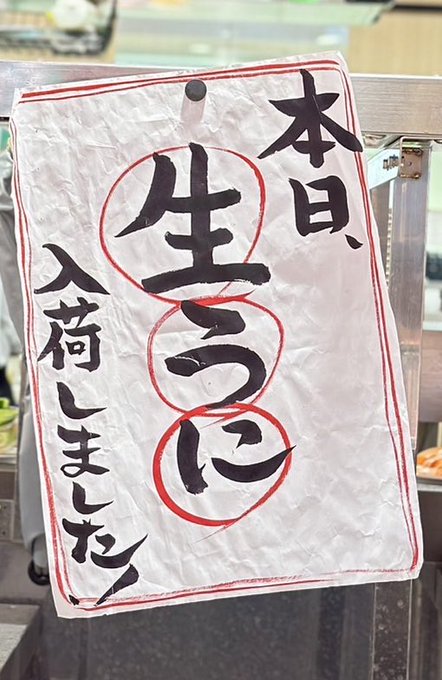 本日、
生うに
入荷しました!